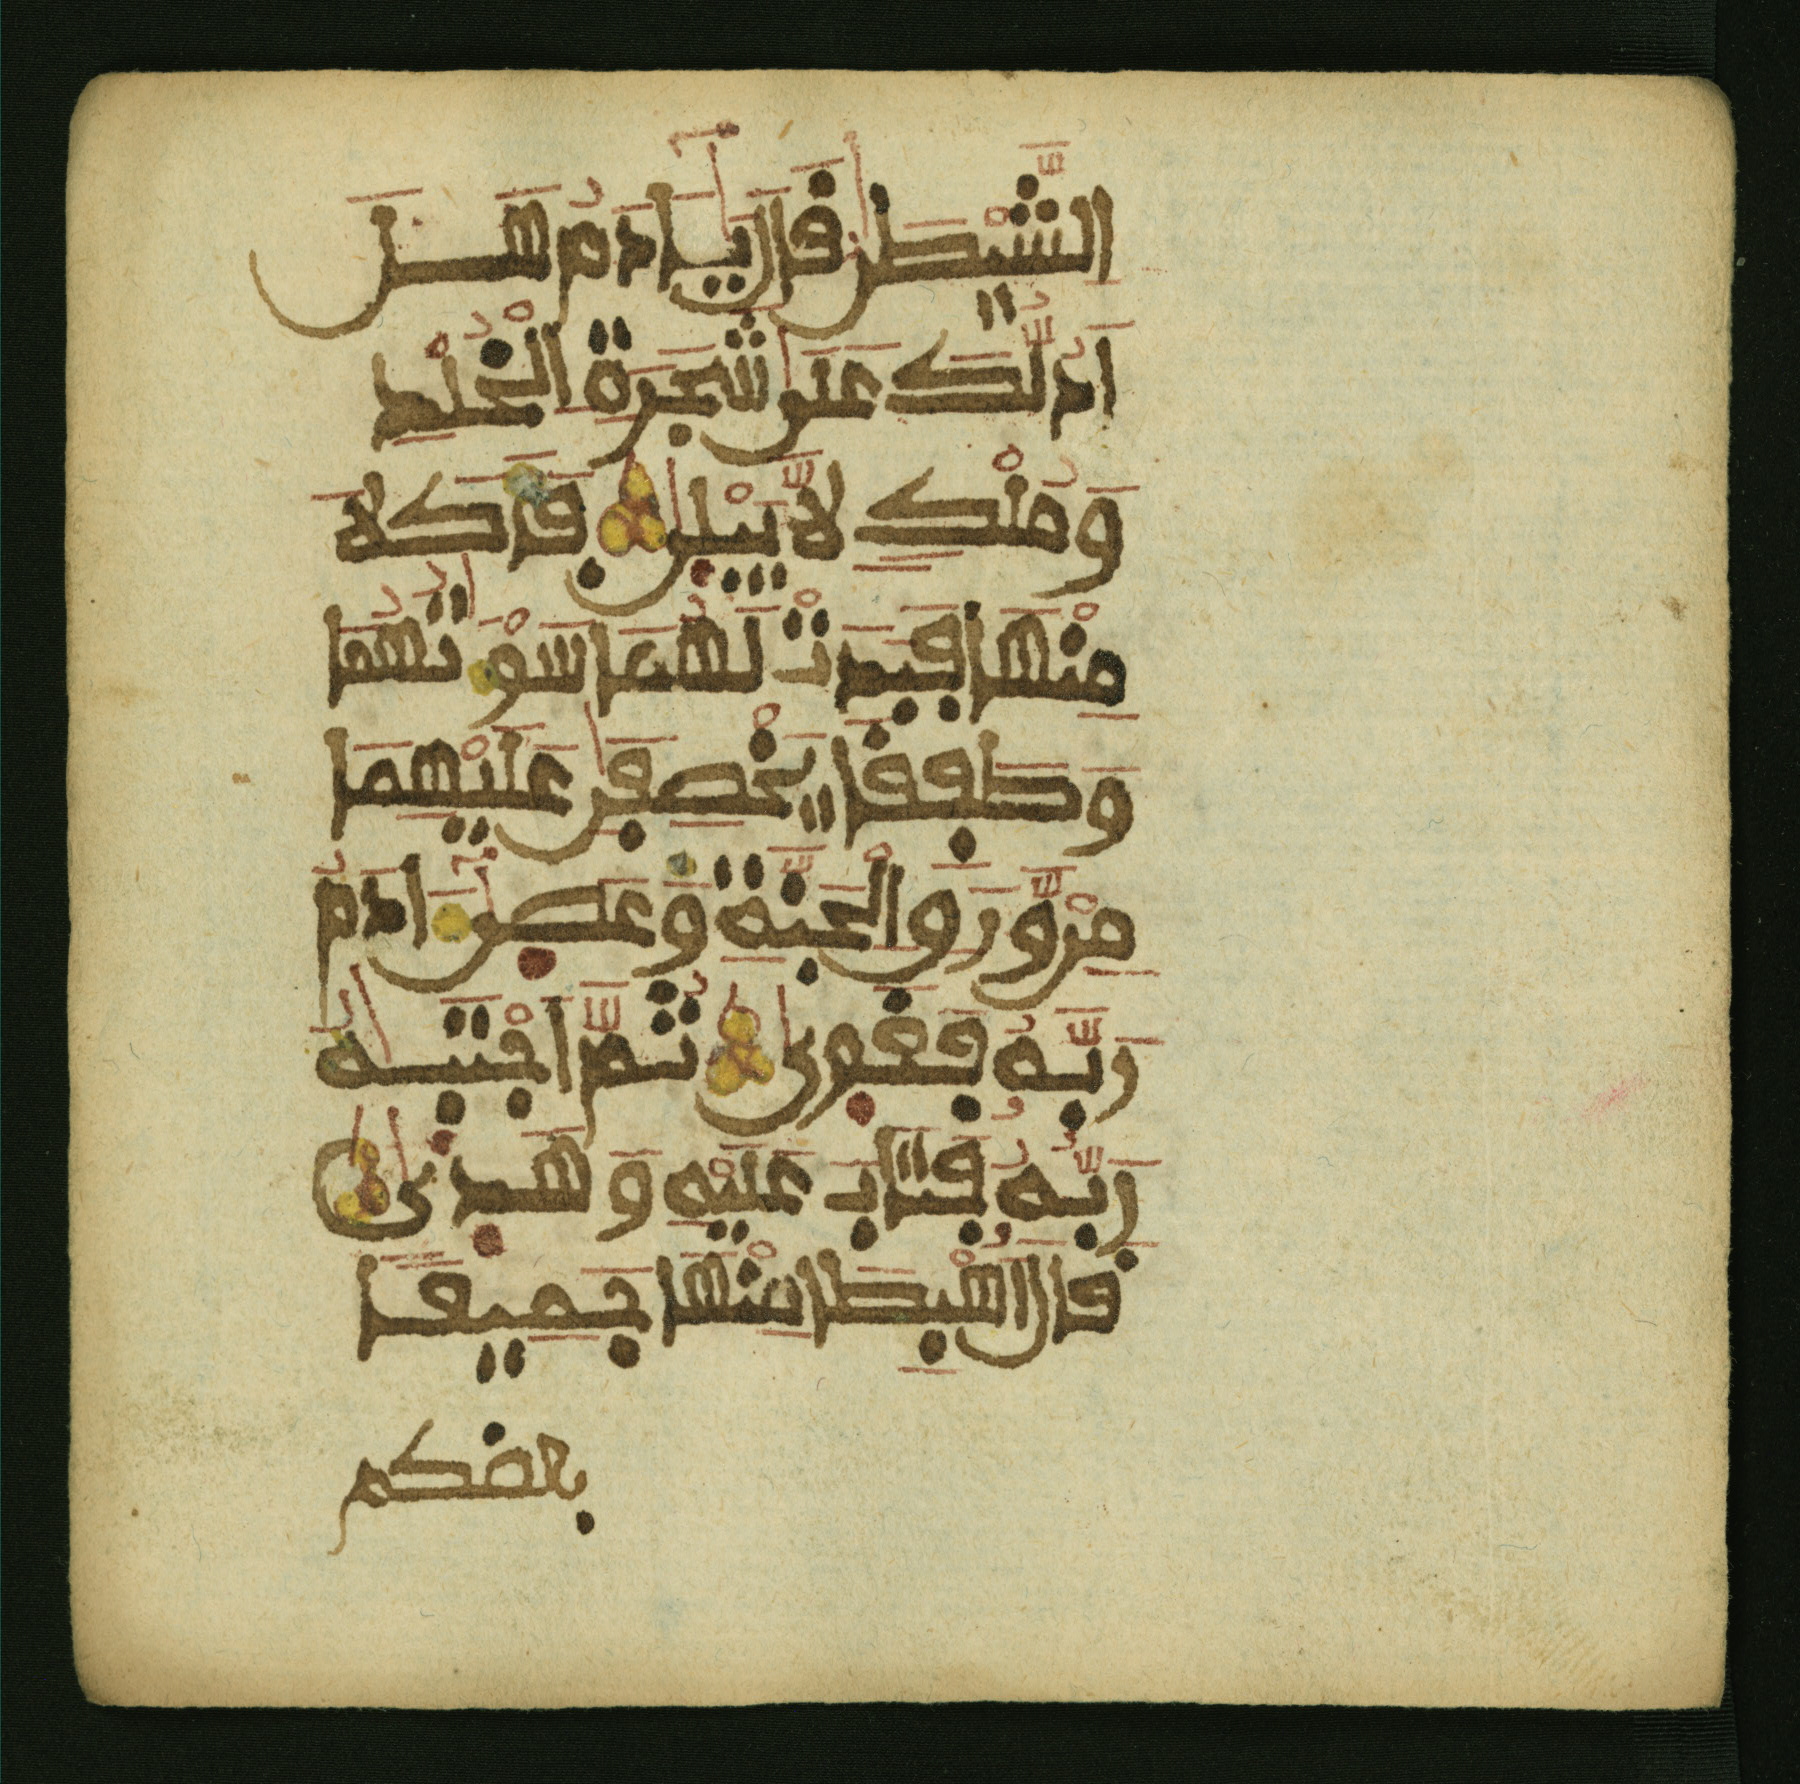 الشَّيْطَٰنُ قَالَ يَٰٓـَٔادَمُ هَلَ
اَدُلُّكَ عَلَىٰ شَجَرَةِ الْخُلْدِ
وَمُلْكٍ لَّا يَبْلَىٰ فَأَكَلَا
مِنْهَا فَبَدَتْ لَهُمَا سَوْءَٰتُهُمَا
وَطَفِقَا يَخْصِفَٰنِ عَلَيْهِمَا
مِنْ وَّرَقِ الْجَنَّةِ وَعَصَىٰٓ ءَادَمُ
رَبَّهُۥ فَغَوَىٰ ثُمَّ اجْتَبَٰهُ
رَبُّهُۥ فَتَابَ عَلَيْهِ وَهَدَىٰ
قَالَ اهْبِطَا مِنْهَا جَمِيعًا
بعضكم